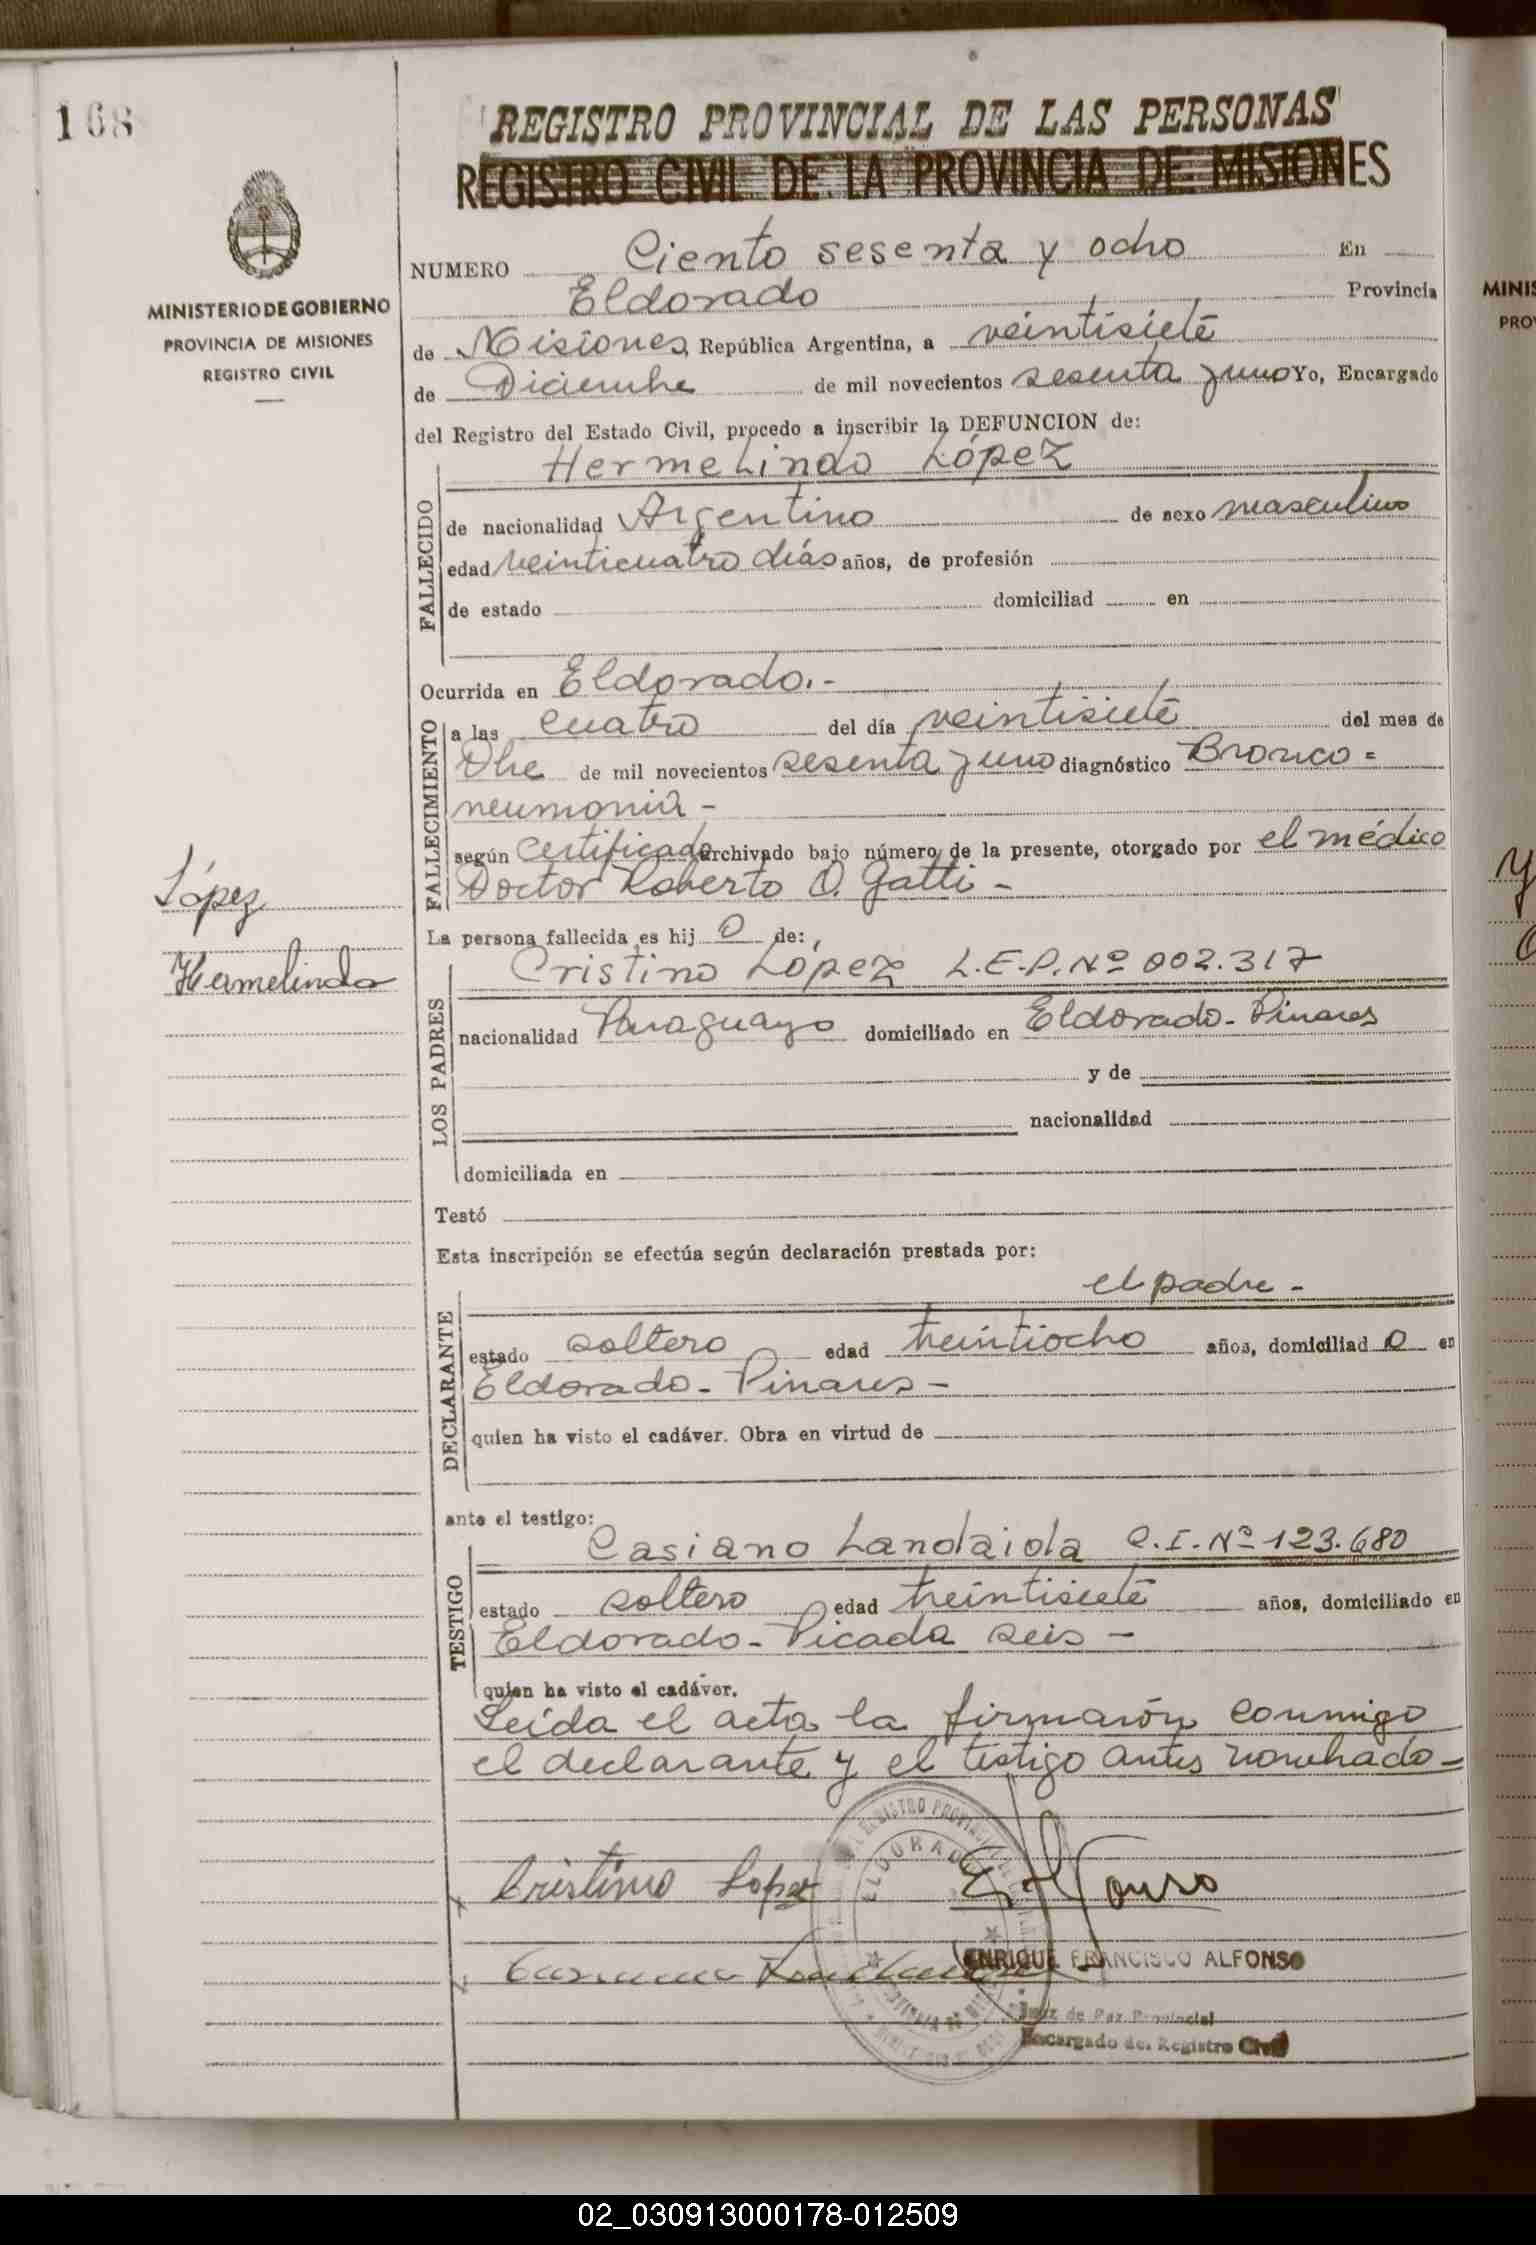 168
REGISTRO PROVINCIAL DE LAS PERSONAS
REGISTRO CIVIL DE LA PROVINCIA DE MISIONES
MINISTERIO DE GOBIERNO
PROVINCIA DE MISIONES
REGISTRO CIVIL
NUMERO Ciento sesenta y ocho En
Eldorado Provincia
de Misiones, República Argentina, a veintisiete
de Diciembre de mil novecientos sesenta y uno Yo, Encargado
del Registro del Estado Civil, procedo a inscribir la DEFUNCION de:
HermeLindo López
FALLECIDO
de nacionalidad Argentino de sexo masculino
edad veinticuatro días años, de profesión
de estado domiciliad en
Ocurrida en Eldorado.-
FALLECIMIENTO
a las cuatro del día veintisiete del mes de
Dbre de mil novecientos sesenta y uno diagnóstico Bronco=
neumonia -
según certificado archivado bajo número de la presente, otorgado por el médico
Doctor Roberto O. Gatti -
López
Hermelindo
La persona fallecida es hij o de:
LOS PADRES
Cristino López L.E.P. Nº 002.317
nacionalidad Paraguayo domiciliado en Eldorado - Pinares
y de
nacionalidad
domiciliada en
Testó
Esta inscripción se efectúa según declaración prestada por:
el padre -
DECLARANTE
estado soltero edad treintiocho años, domiciliad o en
Eldorado - Pinares -
quien ha visto el cadáver. Obra en virtud de
ante el testigo:
TESTIGO
Casiano Landaida C.I. Nº 123.680
estado soltero edad treintisiete años, domiciliado en
Eldorado - Picada seis -
quien ha visto el cadáver.
Leída el acta la firmarón conmigo
el declarante y el testigo antes nombrado -
Cristino Lopez
ELDORADO
ENRIQUE FRANCISCO ALFONSO
Juez de Paz Provincial
Encargado del Registro Civil
MINIS
PRO
02_030913000178-012509